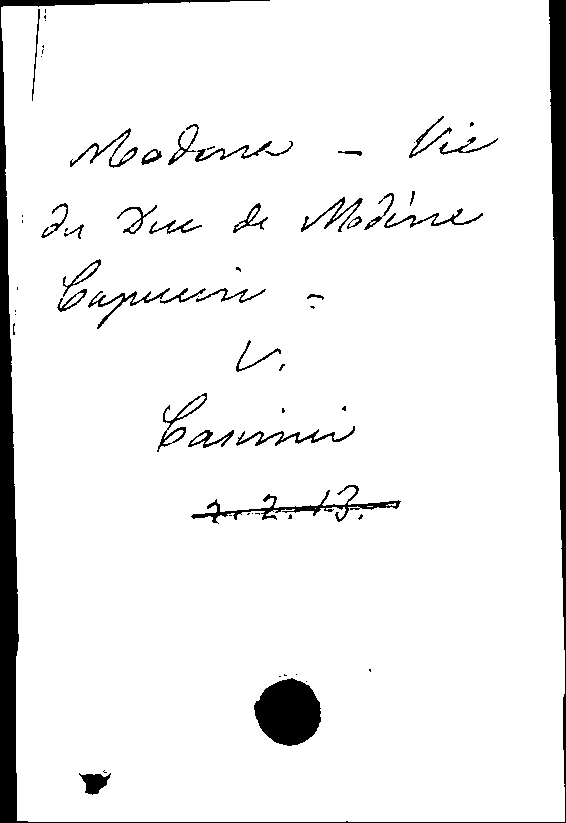 Modona - Vie
du Duc de Modène
Capucin -
V.
Casimir
2. 2. 13.